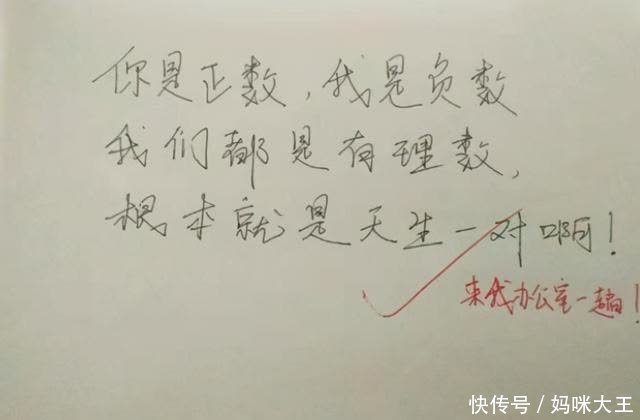 你是正数，我是负数
我们都是有理数，
根本就是天生一对啊！
来我办公室一趟！
快传号／妈咪大王